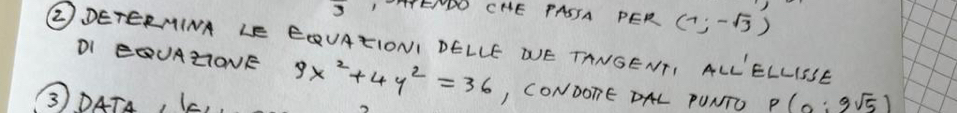 3, SAPENDO CHE PASSA PER (1; -√3)
② DETERMINA LE EQUAZIONI DELLE DUE TANGENTI ALL'ELLISSE
DI EQUAZIONE 9x² + 4y² = 36, CONDOTTE DAL PUNTO P(0; 9√5)
③ DATA